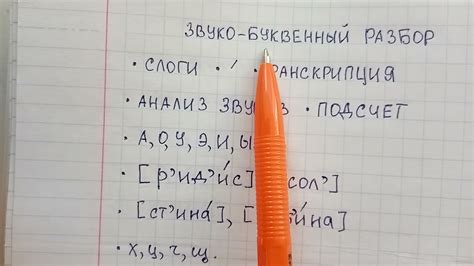 ЗВУКО-БУКВЕННЫЙ РАЗБОР
• СЛОГИ • ՛ • ТРАНСКРИПЦИЯ
• АНАЛИЗ • ПОДСЧЕТ
• А, О, У, Э, И, Ы
• [р'ид'и́с]
• [ст'ина́],
• х, ц, ч, щ.